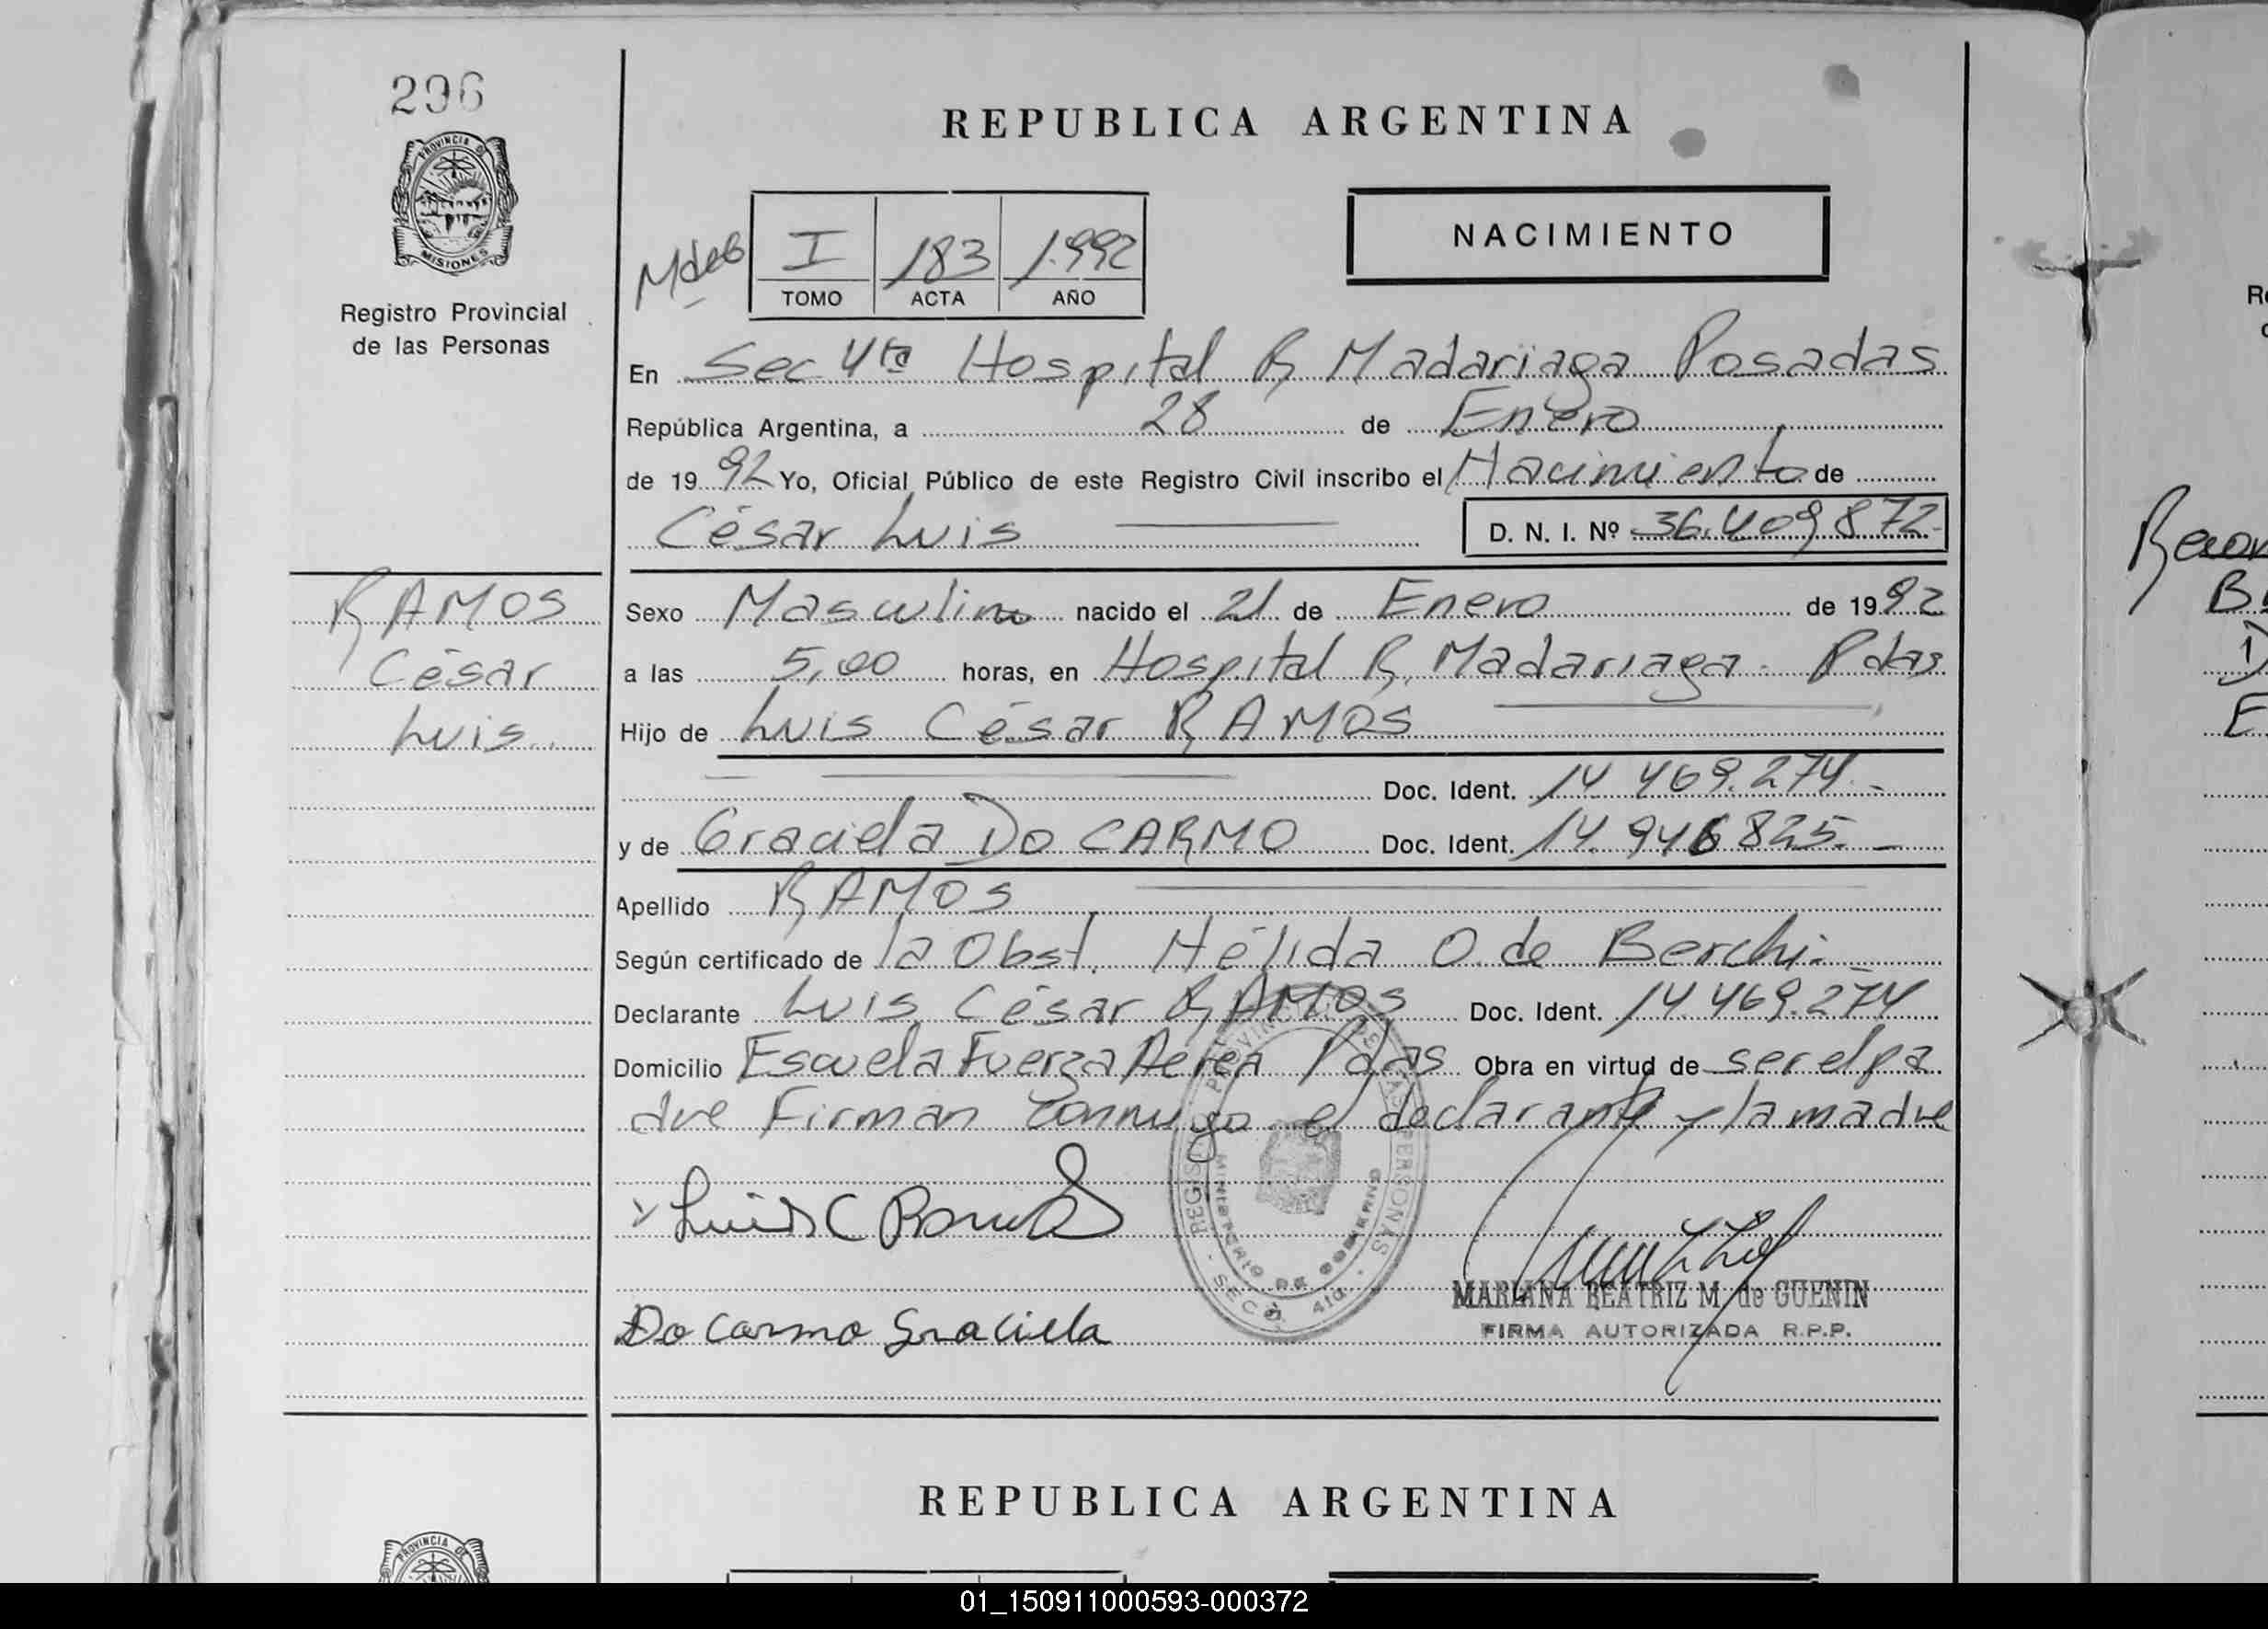 296
PROVINCIA DE
MISIONES
Registro Provincial
de las Personas
REPUBLICA ARGENTINA
NACIMIENTO
I 183 1.992
TOMO ACTA AÑO
En Sec 4ta Hospital R Madariaga Posadas
República Argentina, a 28 de Enero
de 1992 Yo, Oficial Público de este Registro Civil inscribo el Nacimiento de
César Luis D. N. I. Nº 36.409872-
RAMOS
César
Luis
Sexo Masculino nacido el 21 de Enero de 1992
a las 5,00 horas, en Hospital R. Madariaga - Pdas
Hijo de Luis César RAMOS
Doc. Ident. 14 469.274.-
y de Graciela Do CARMO Doc. Ident. 14.946825.-
Apellido RAMOS
Según certificado de la Obst. Nélida O. de Berchi.-
Declarante Luis César RAMOS Doc. Ident. 14.469.274
Domicilio Escuela Fuerza Aerea Pdas Obra en virtud de ser el pa
dre Firman conmigo el declarante y la madre
Luis C Ramos
Do Carmo Graciela
MARIANA BEATRIZ M. de GUENIN
FIRMA AUTORIZADA R.P.P.
REPUBLICA ARGENTINA
PROVINCIA DE
01_150911000593-000372